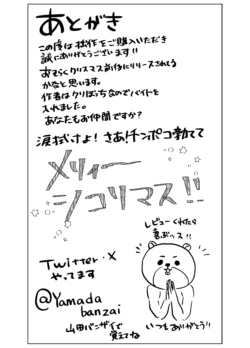 あとがき
この度は拙作をご購入いただき
誠にありがとうございます!!
おそらくクリスマス前後にリリースされる
かなと思います。
作者はクリぼっちなのでバイトを
入れました。
あなたもお仲間ですか?
涙拭けよ!さあ!チンポコ勃てて
メリィー
シコリマス!!
レビューくれたら
喜ぶッス!!
Twitter・X
やってます
@Yamada
banzai
山田バンザイで
覚えてね
いつもありがとう!!